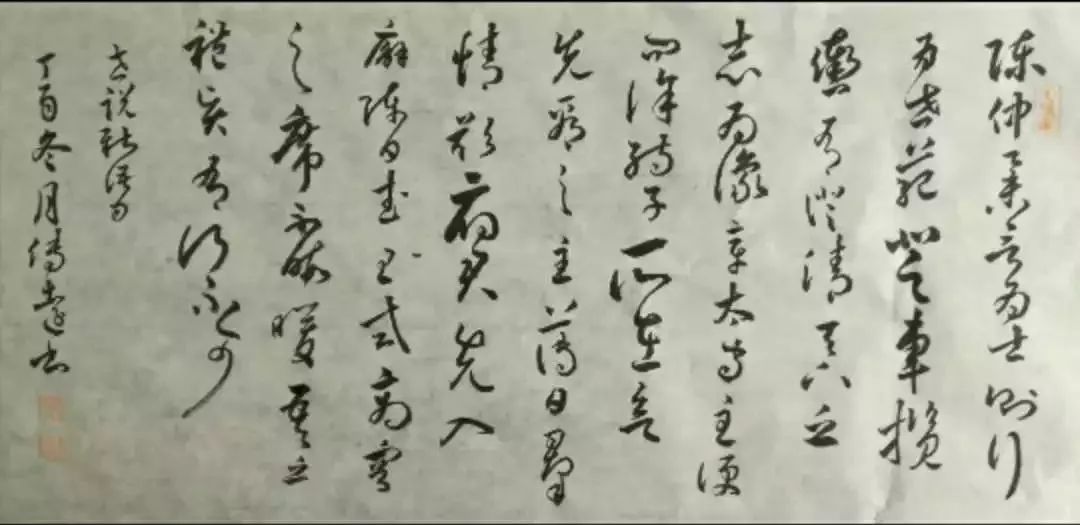 陈仲举言为士则行
为世范登车揽
辔有澄清天下之
志为豫章太守至便
问徐孺子所在欲
先看之主簿曰群
情欲府君先入
廨陈曰武王式商容
之席不暇暖吾之
礼贤有何不可
世说新语句
丁酉冬月傅书